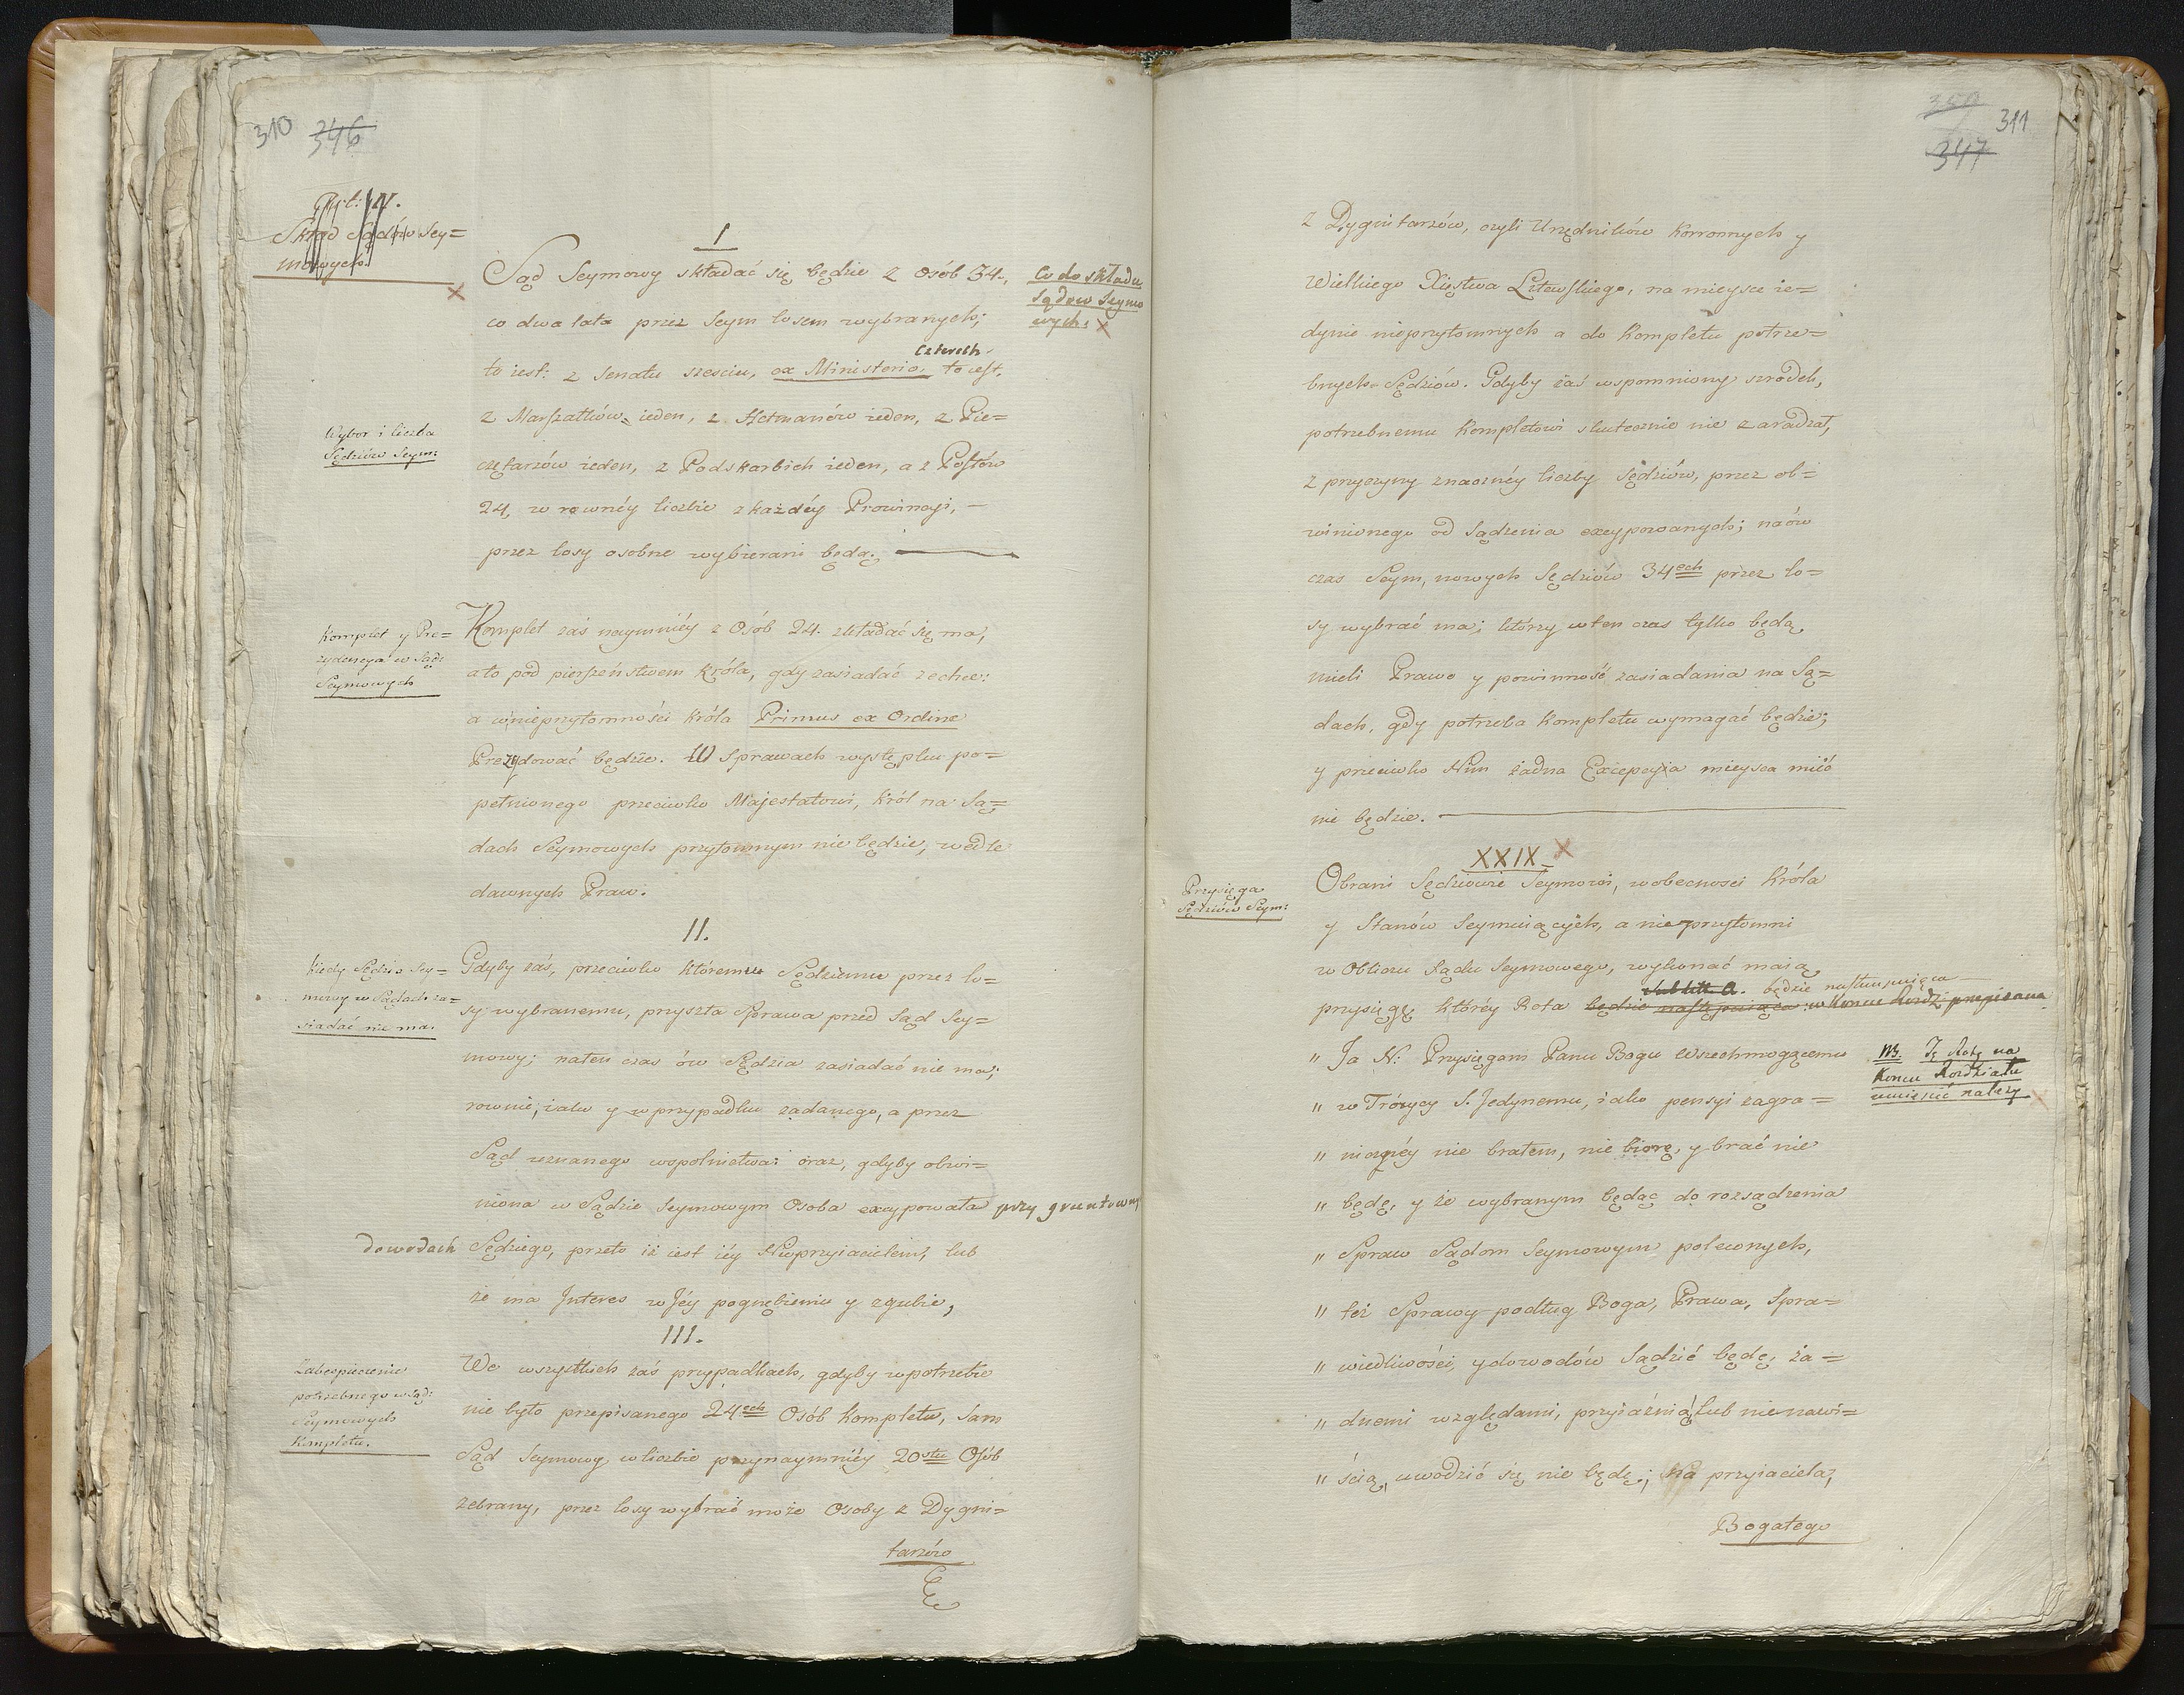 310 346
Tyt: IV.
Skład Sądów Sey=
mowych.
I
Sąd Seymowy składać się będzie z osób 34.,
co dwa lata przez Seym losem wybranych;
Co do składu
Sądow Seymo
wych:
czterech
to iest: z Senatu sześciu, ex Ministerio, to iest,
z Marszałków ieden, z Hetmanów ieden, z Pie=
Wybor i liczba
Sędziów Seym:
czętarzów ieden, z Podskarbich ieden, a z Posłów
24, w równéy liczbie z każdéy Prowincyi, —
przez losy osobne wybierani będą.
Komplet y Pre=
zydencya w Sąd:
Seymowych
Komplet zaś naymniéy z Osób 24. składać się ma,
a to pod pierszeństwem Króla, gdy zasiadać zechce:
a w nieprzytomności Króla Primus ex Ordine
Prezydować będzie. W Sprawach występku po=
pełnionego przeciwko Majestatowi, Król na Są=
dach Seymowych przytomnym nie będzie, wedle
dawnych Praw.
II.
Kiedy Sędzia Sey=
mowy w Sądach za=
siadać nie ma.
Gdyby zaś, przeciwko któremu Sędziemu przez lo=
sy wybranemu, przyszła Sprawa przed Sąd Sey=
mowy; naten czas ów Sędzia zasiadać nie ma;
rownie, iako y w przypadku zadanego, a przez
Sąd uznanego wspolnictwa: oraz, gdyby obwi=
niona w Sądzie Seymowym Osoba excypowała przy gruntown
dowodach Sędziego, przeto iż iest iéy Nieprzyiacielem, lub
że ma Interes w Jéy pognębieniu y zgubie,
III.
Zabespieczenie
potrzebnego w Sąd:
Seymowych
Kompletu.
We wszystkich zaś przypadkach, gdyby w potrzebie
nie było przepisanego 24ech Osób Kompletu, sam
Sąd Seymowy w liczbie przynaymniéy 20stu Osób
zebrany, przez losy wybrać może Osoby z Dygni=
tarzów
350 311
347
z Dygnitarzów, czyli Urzędników Koronnych y
Wielkiego Xięstwa Litewskiego, na mieysce ie=
dynie nieprzytomnych a do Kompletu potrze=
bnych Sędziów. Gdyby zaś wspomniony szrodek,
potrzebnemu Kompletowi skutecznie nie zaradzał,
z przyczyny znacznéy liczby Sędziów, przez ob=
winionego od Sądzenia excypowanych; naów
czas Seym, nowych Sędziów 34ech przez lo=
sy wybrać ma; którzy w ten czas tylko będą
mieli Prawo y powinność zasiadania na Są=
dach, gdy potrzeba Kompletu wymagać będzie;
y przeciwko Nim żadna Excepcyia mieysca mieć
nie będzie.
XXIX
Przysięga
Sędziów Seym:
Obrani Sędziowie Seymowi, w obecności Króla
y Stanów Seymuiących, a nieprzytomni
w Obliczu Sądu Seymowego, wykonać maią
sub litt. A. będzie następuiąca
przysięgę, któréy Rota będzie następuiąca w Koncu Rozdz: przepisana
„ Ja N: Przysięgam Panu Bogu Wszechmogącemu
NB. Tę Rotę na
Koncu Rozdziału
umieścić należy
„ w Tróycy S. Jedynemu, iako pensyi zagra=
„ niczney nie brałem, nie biorę, y brać nie
„ będę, y że wybranym będąc do rozsądzenia
„ Spraw Sądom Seymowym poleconych,
„ też Sprawy podług Boga, Prawa, Spra=
„ wiedliwości, y dowodów Sądzić będę, ża=
„ dnemi względami, przyiaźnią, lub nienawi=
„ ścią, uwodzić się nie będę; Na przyiaciela,
Bogatego